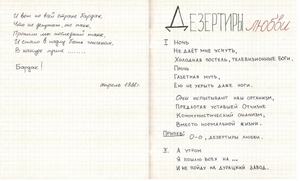 И вот не вой страна Бардак,
Что не
Прошли мы последний
И снова в
В конце
Бардак!
апрель 1986г.
ДЕЗЕРТИРЫ ЛЮБВИ
I Ночь
Не даёт мне уснуть,
Холодная постель, телевизионные боги,
Прочь
Газетная муть,
Ею не укрыть даже ноги.
Они испытывают нам организм,
Предлагая уставшей Отчизне
Коммунистический онанизм,
Вместо нормальной жизни.
Припев: О-о, дезертиры любви.
II А утром
Я пошлю всех на ...
И не пойду на дурацкий завод.